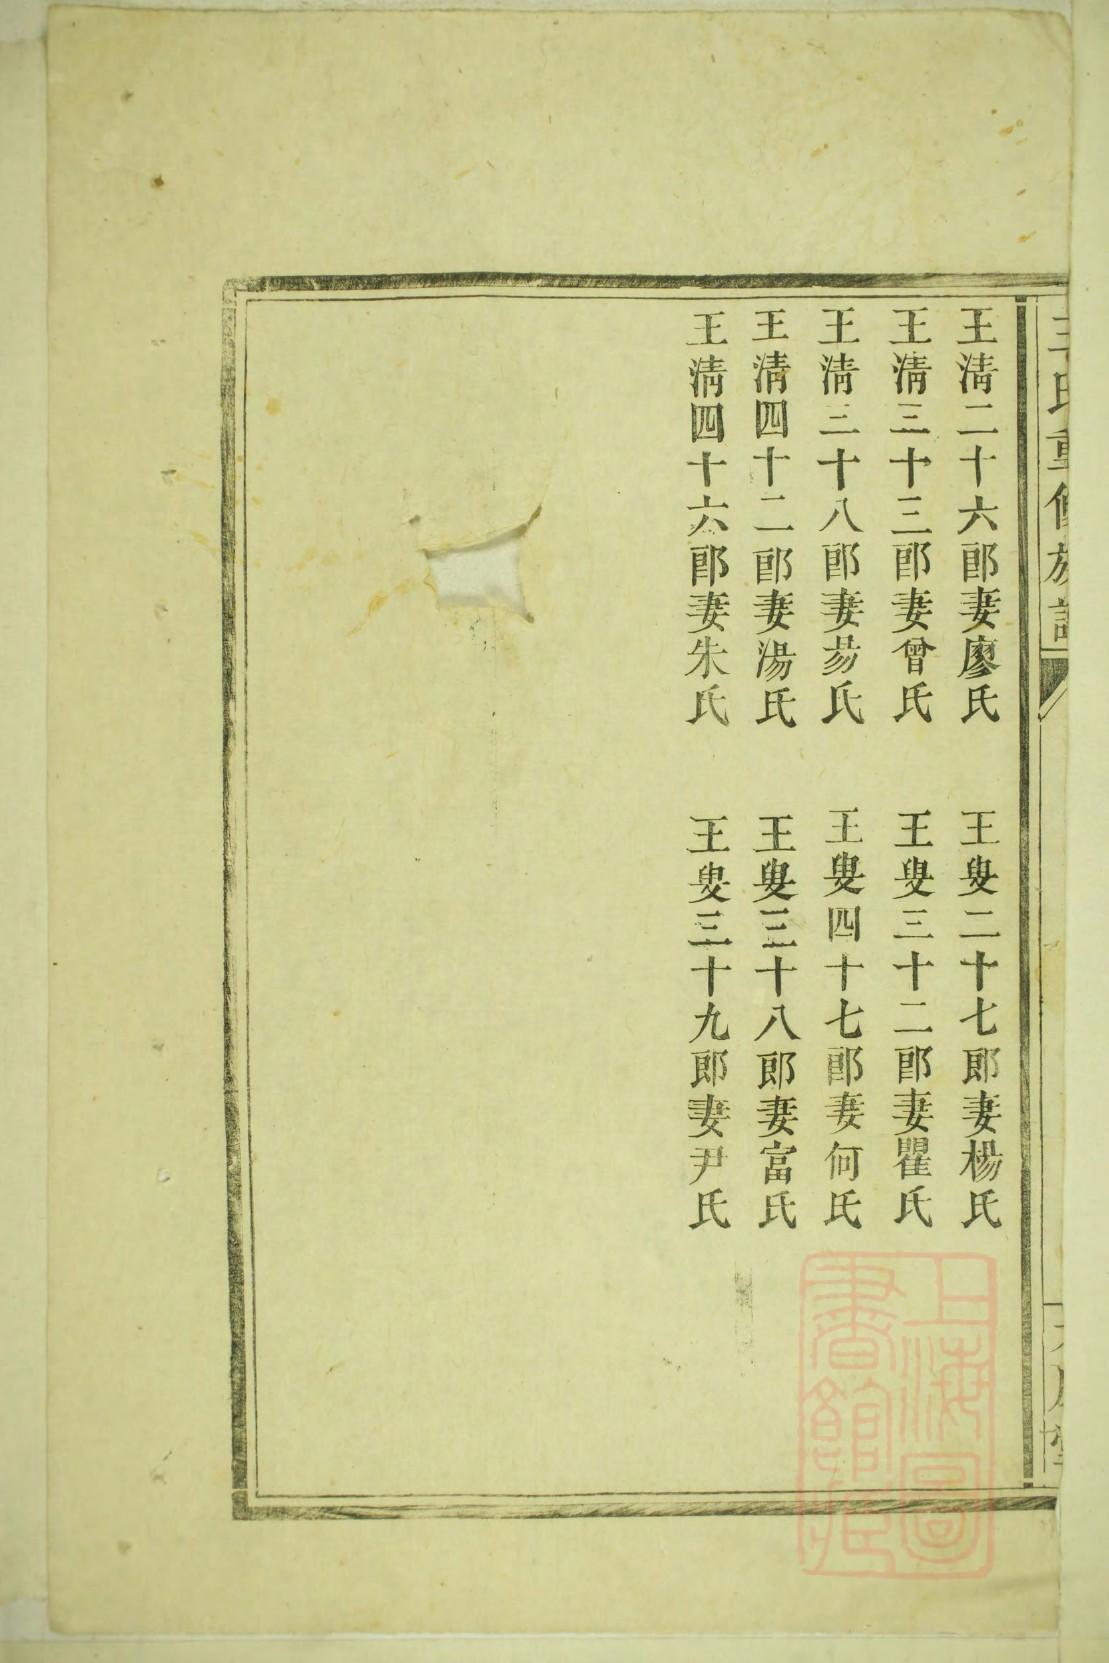 王清二十六郎妻廖氏　王叟二十七郎妻楊氏
王清三十三郎妻曾氏　王叟三十二郎妻瞿氏
王清三十八郎妻昜氏　王叟四十七郎妻何氏
王清四十二郎妻湯氏　王叟三十八郎妻富氏
王清四十六郎妻朱氏　王叟三十九郎妻尹氏
上海圖
書館藏